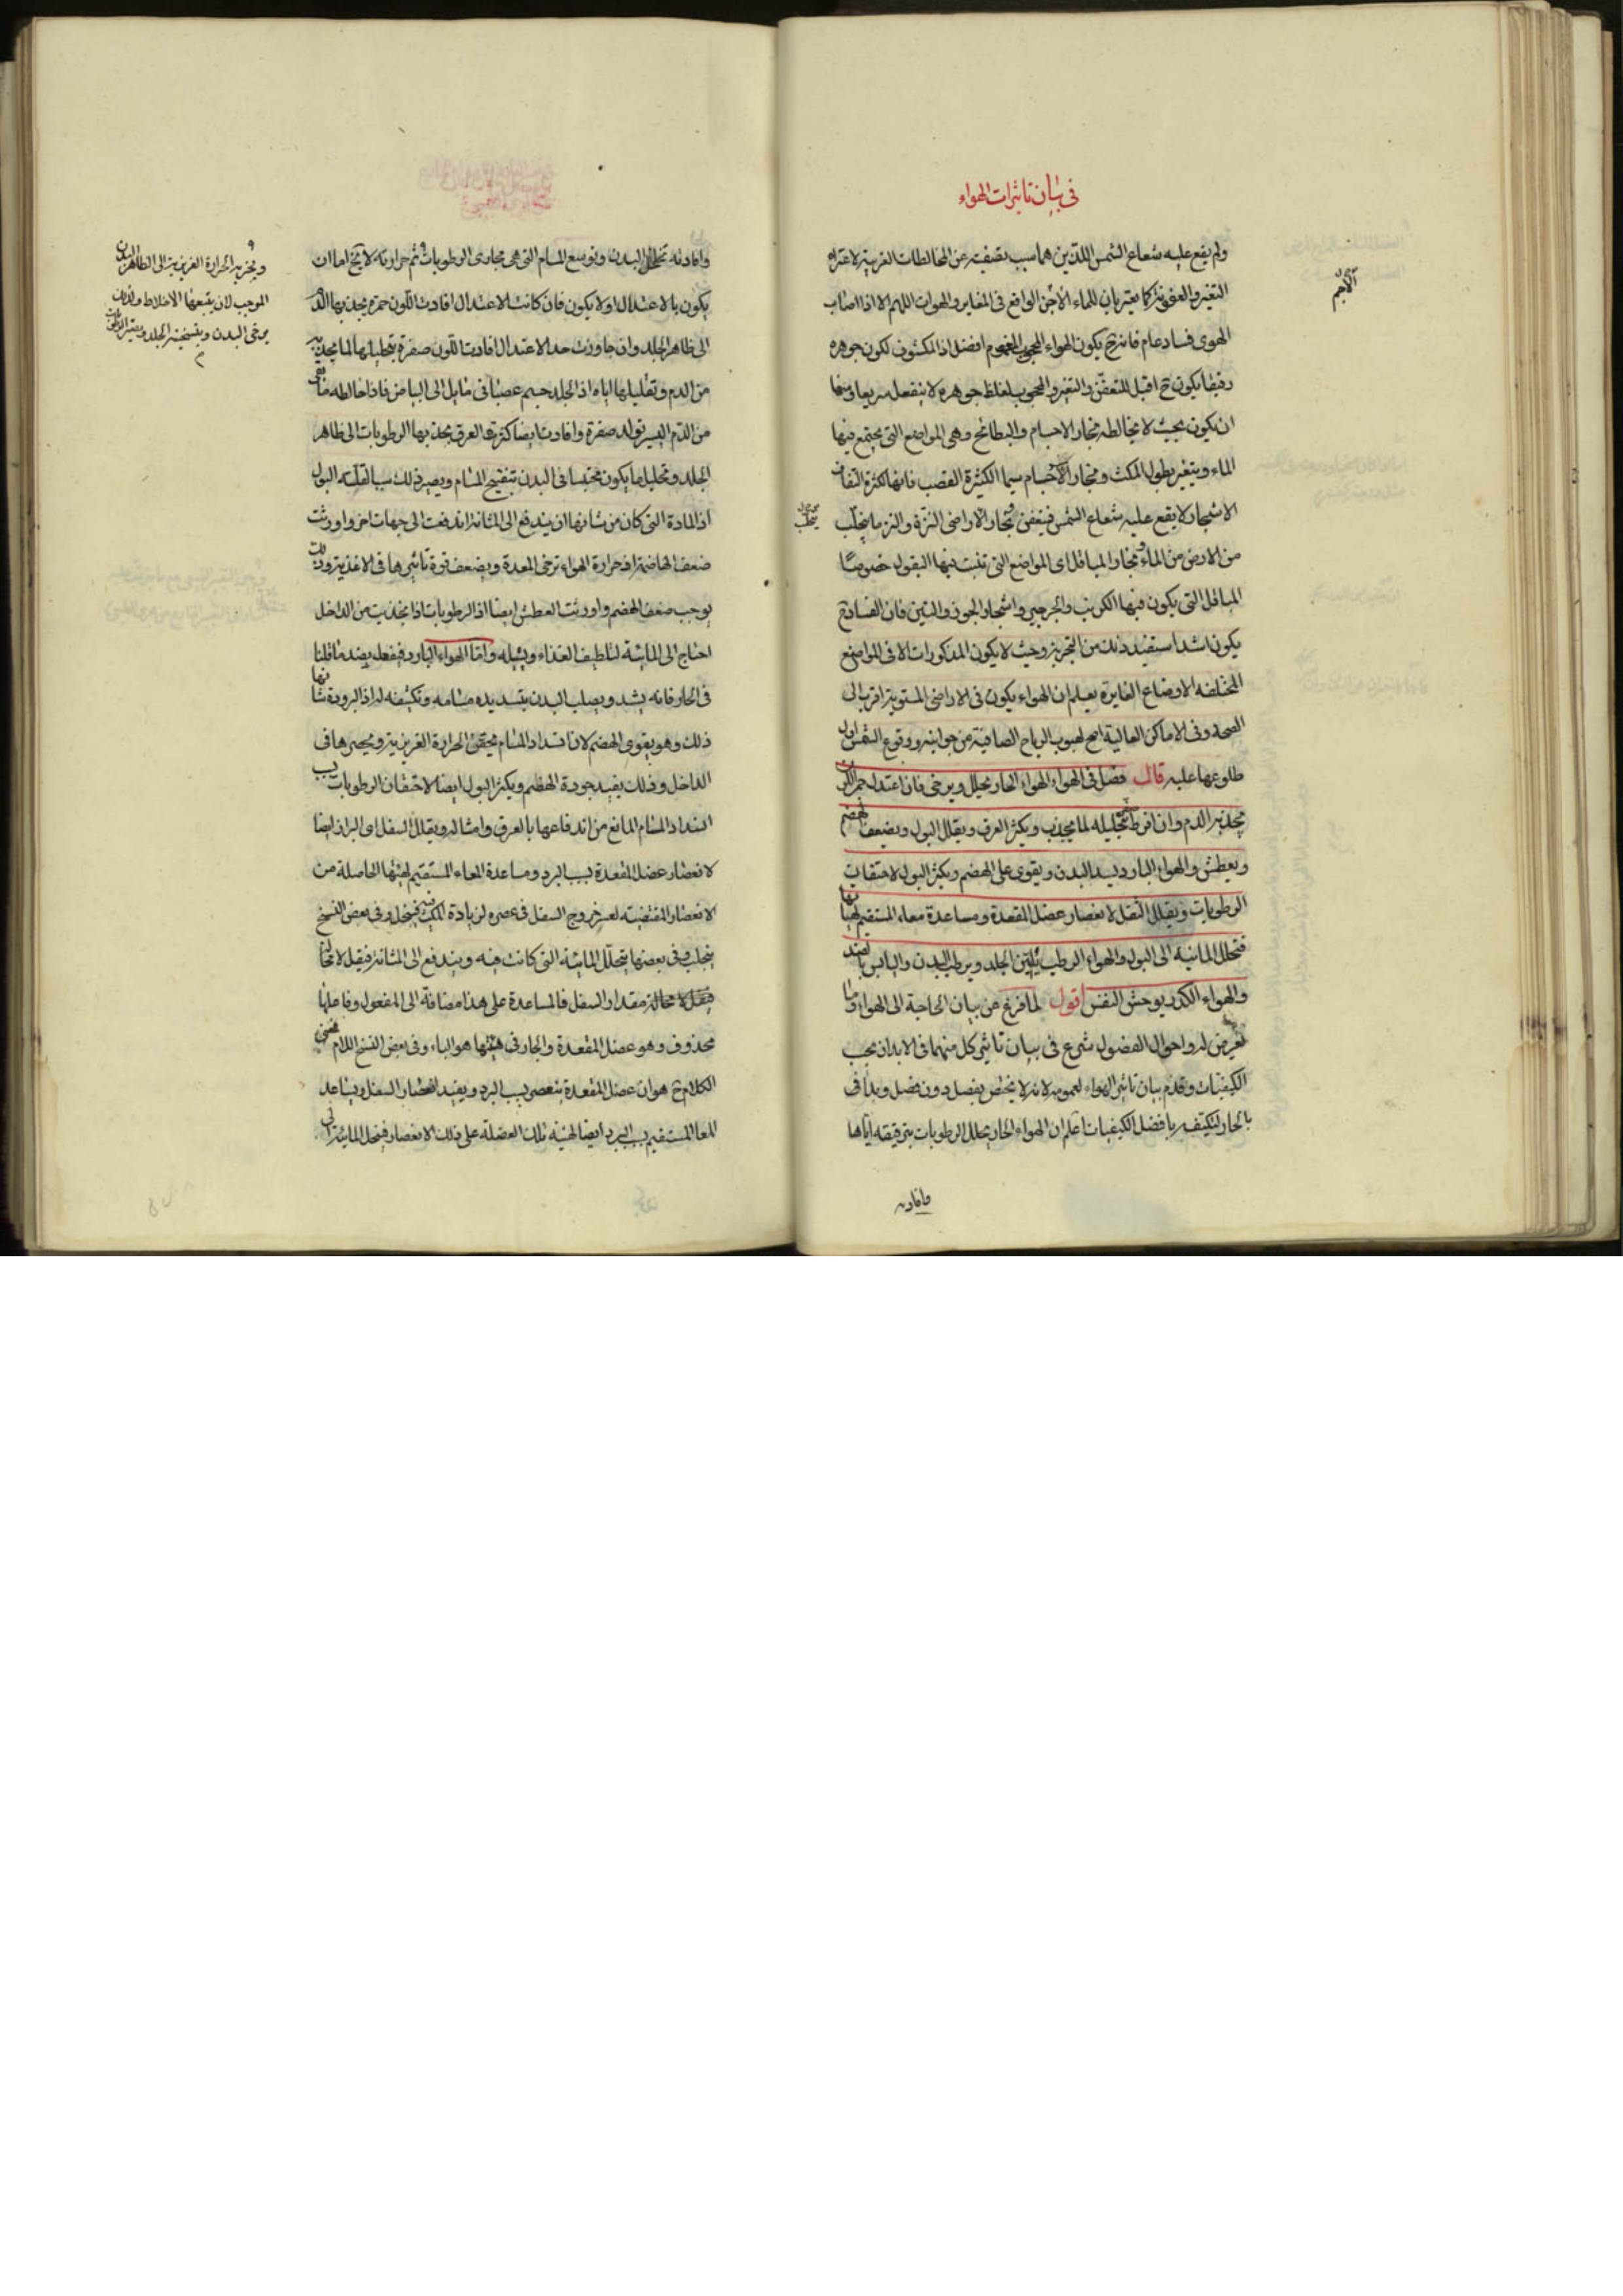 في بيان تاثيرات الهواء
ولم يقع عليه شعاع الشمس اللذين هما سبب تصفيته عن المخالطات الغريبة لاعتراه
التغير والعفونة كما يعتريان للماء الآجن الواقع في المغاير والهوات اللهم الا اذا اصاب
الهوى فساد عام فانه ح يكون الهواء المحجوب المغموم افضل اذ المكشوف لكون جوهره
رقيقا يكون ح اقبل للتعفن والتغير والمحجوب لغلظ جوهره لا ينفعل سريعا
ان يكون بحيث لا يخالطه بخار الاجسام والبطائح وهي المواضع التي يجتمع فيها
الماء ويتغير بطول المكث وبخار الاجسام سيما الكثيرة القصب فانها لكثرة التفاف
الاشجار لا يقع عليه شعاع الشمس فيتعفن وبخار الاراضي النزة والنز ما يتحلب
من الارض من الماء وبخار المباقل اى المواضع التي تنبت فيها البقول خصوصا
المباقل التي يكون فيها الكرنب والجرجير واشجار الجوز والتين فان الفساد ح
يكون اشد استفيد ذلك من التجربة وحيث لا يكون المذكورات الا في المواضع
المختلفة الاوضاع الغايرة يعلم ان الهواء يكون في الاراضي المستوية اقرب الى
الصحة وفي الاماكن العالية اصح لهبوب الرياح الصافية من جوانبه ووقوع الشمس اول
طلوعها عليه قال فصل في الهواء الهواء الحار يحلل ويرخى فان اعتدل حمر اللون
بجذبه الدم وان افرط صفر بتحليله لما يجذب ويكثر العرق ويقلل البول ويضعف الهضم
ويعطش والهواء البارد يشد البدن ويقوى على الهضم ويكثر البول لاحتقان
الرطوبات ويقلل الثفل لانعصار عضل المقعدة ومساعدة معاء المستقيم لهيأتها
فتحلل المائية الى البول والهواء الرطب يلين الجلد ويرطب البدن واليابس بالضد
والهواء الكدر يوحش النفس اقول لما فرغ من بيان الحاجة الى الهواء وما
تعرض له واحوال الفصول شرع في بيان تاثير كل منهما في الابدان بحسب
الكيفيات وقدم بيان تاثير الهواء لعمومه لانه لا يختص بفصل دون فصل وبدأ في
بالحار لتكيفه بافضل الكيفيات اعلم ان الهواء الحار يحلل الرطوبات بترقيقه اياها
وافادته
الآجم
يتحلب
وافادته تخلخل البدن وتوسع المسام التي هي مجارى الرطوبات ثم حرارته لا يخ اما ان
يكون بالاعتدال اولا يكون فان كانت بالاعتدال افادت اللون حمرة بجذبها الدم
الى ظاهر الجلد وان جاوزت حد الاعتدال افادت اللون صفرة بتحليلها لما يجذبه
من الدم وتقليلها اياه اذ الجلد جسم عصباني مايل الى البياض فاذا خالطه ما بقى
من الدم اليسير تولد صفرة وافادت ايضا كثرة العرق بجذبها الرطوبات الى ظاهر
الجلد وتحليل ما يكون محتبسا في البدن بتفتيح المسام ويصير ذلك سببا لقلة البول
اذ المادة التي كان من شانها ان يندفع الى المثانة اندفعت الى جهات اخر واورثت
ضعف الهاضمة اذ حرارة الهواء ترخى المعدة ويضعف قوة تاثيرها في الاغذية وذلك
يوجب ضعف الهضم واورثت العطش ايضا اذ الرطوبات اذا انجذبت من الداخل
احتاج الى المائية لتلطيف الغذاء ويبله واما الهواء البارد فيفعل بضد ما قلنا
في الحار فانه يشد ويصلب البدن بتسديده مسامه وتكثيفه له اذ البرودة شانها
ذلك وهو يقوى الهضم لان انسداد المسام يحقن الحرارة الغريزية ويحصرها في
الداخل وذلك يفيد جودة الهضم ويكثر البول ايضا لاحتقان الرطوبات بسبب
انسداد المسام المانع من اندفاعها بالعرق وامثاله ويقلل السفل اى البراز ايضا
لانعصار عضل المقعدة بسبب البرد ومساعدة المعاء المستقيم لهيئتها الحاصلة من
الانعصار المقتضية لعسر خروج السفل في عصره لزيادة المكث فينحل وفي بعض النسخ
يتحلب وفي بعضها يتحلل المائية التي كانت فيه ويندفع الى المثانة فيقل لا محالة
مقدار السفل فالمساعدة على هذا مضافة الى المفعول وفاعلها
محذوف وهو عضل المقعدة والجار في هيئتها هو الباء وفي بعض النسخ اللام فمعنى
الكلام ح هو ان عضل المقعدة ينعصر بسبب البرد ويفيد انعصار السفل ويساعد
المعا المستقيم بسبب البرد ايضا لهيئة تلك العضلة على ذلك الانعصار فينحل المائية الى
الحرارة الغريزية الى الظاهر
الموجب لان يتبعها الاخلاط
يرخى البدن وبتسخينه الجلد